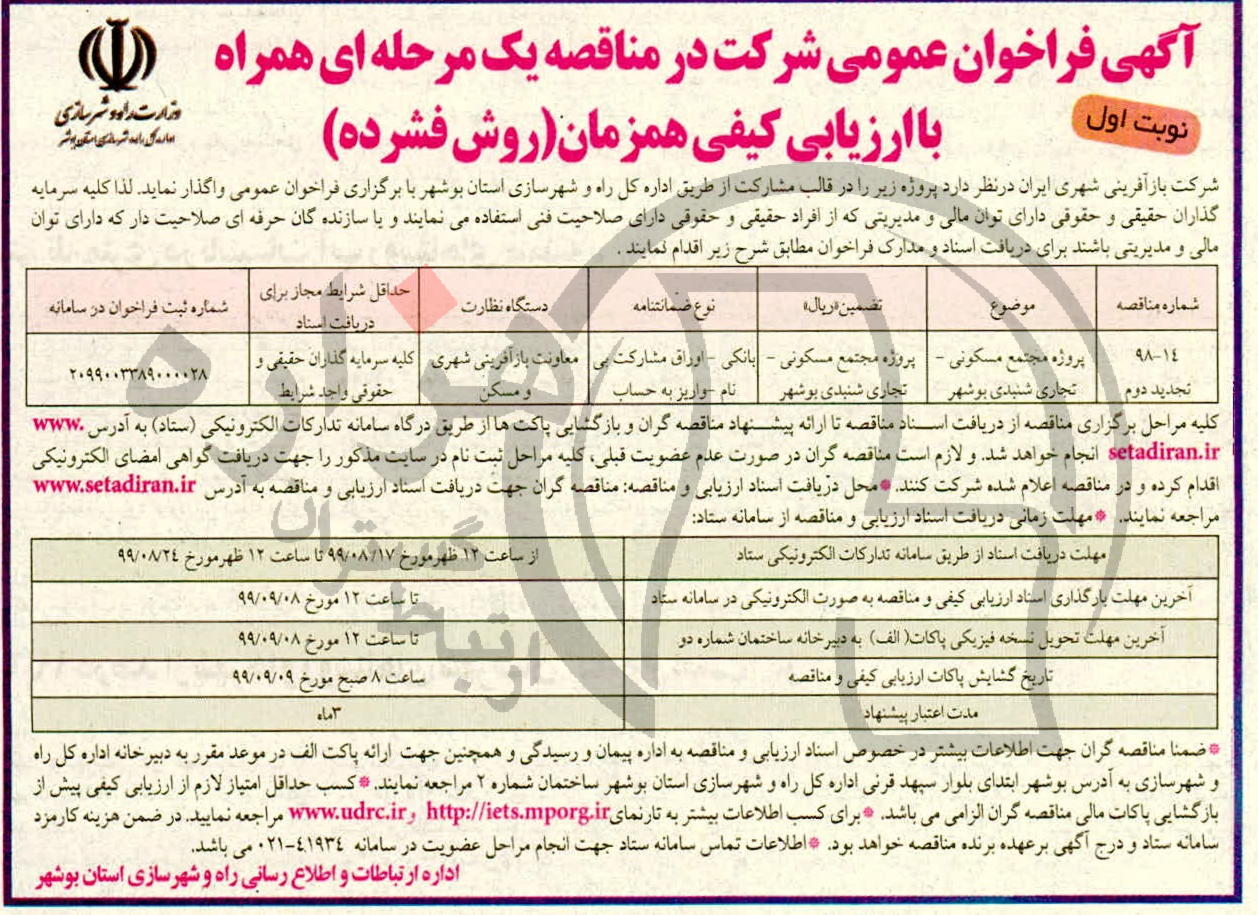 آگهی فراخوان عمومی شرکت در مناقصه یک مرحله ای همراه
با ارزیابی کیفی همزمان (روش فشرده)
نوبت اول
وزارت راه و شهرسازی
اداره کل راه و شهرسازی استان بوشهر
شرکت بازآفرینی شهری ایران درنظر دارد پروژه زیر را در قالب مشارکت از طریق اداره کل راه و شهرسازی استان بوشهر با برگزاری فراخوان عمومی واگذار نماید. لذا کلیه سرمایه
گذاران حقیقی و حقوقی دارای توان مالی و مدیریتی که از افراد حقیقی و حقوقی دارای صلاحیت فنی استفاده می نمایند و یا سازنده گان حرفه ای صلاحیت دار که دارای توان
مالی و مدیریتی باشند برای دریافت اسناد و مدارک فراخوان مطابق شرح زیر اقدام نمایند .
شماره مناقصه | موضوع | تضمین«ریال» | نوع ضمانتنامه | دستگاه نظارت | حداقل شرایط مجاز برای دریافت اسناد | شماره ثبت فراخوان در سامانه
۹۸-۱۴ تجدید دوم | پروژه مجتمع مسکونی - تجاری شنبدی بوشهر | پروژه مجتمع مسکونی - تجاری شنبدی بوشهر | بانکی - اوراق مشارکت بی نام - واریز به حساب | معاونت بازآفرینی شهری و مسکن | کلیه سرمایه گذاران حقیقی و حقوقی واجد شرایط | ۲۰۹۹۰۰۳۳۸۹۰۰۰۰۲۸
کلیه مراحل برگزاری مناقصه از دریافت اسناد مناقصه تا ارائه پیشنهاد مناقصه گران و بازگشایی پاکت ها از طریق درگاه سامانه تدارکات الکترونیکی (ستاد) به آدرس www.
setadiran.ir انجام خواهد شد. و لازم است مناقصه گران در صورت عدم عضویت قبلی، کلیه مراحل ثبت نام در سایت مذکور را جهت دریافت گواهی امضای الکترونیکی
اقدام کرده و در مناقصه اعلام شده شرکت کنند. *محل دریافت اسناد ارزیابی و مناقصه: مناقصه گران جهت دریافت اسناد ارزیابی و مناقصه به آدرس www.setadiran.ir
مراجعه نمایند. *مهلت زمانی دریافت اسناد ارزیابی و مناقصه از سامانه ستاد:
مهلت دریافت اسناد از طریق سامانه تدارکات الکترونیکی ستاد | از ساعت ۱۲ ظهرمورخ ۹۹/۰۸/۱۷ تا ساعت ۱۲ ظهرمورخ ۹۹/۰۸/۲۴
آخرین مهلت بارگذاری اسناد ارزیابی کیفی و مناقصه به صورت الکترونیکی در سامانه ستاد | تا ساعت ۱۲ مورخ ۹۹/۰۹/۰۸
آخرین مهلت تحویل نسخه فیزیکی پاکات( الف) به دبیرخانه ساختمان شماره دو | تا ساعت ۱۲ مورخ ۹۹/۰۹/۰۸
تاریخ گشایش پاکات ارزیابی کیفی و مناقصه | ساعت ۸ صبح مورخ ۹۹/۰۹/۰۹
مدت اعتبار پیشنهاد | ۳ماه
*ضمنا مناقصه گران جهت اطلاعات بیشتر در خصوص اسناد ارزیابی و مناقصه به اداره پیمان و رسیدگی و همچنین جهت ارائه پاکت الف در موعد مقرر به دبیرخانه اداره کل راه
و شهرسازی به آدرس بوشهر ابتدای بلوار سپهد قرنی اداره کل راه و شهرسازی استان بوشهر ساختمان شماره ۲ مراجعه نمایند. *کسب حداقل امتیاز لازم از ارزیابی کیفی پیش از
بازگشایی پاکات مالی مناقصه گران الزامی می باشد. *برای کسب اطلاعات بیشتر به تارنمای http://iets.mporg.ir و www.udrc.ir مراجعه نمایید. در ضمن هزینه کارمزد
سامانه ستاد و درج آگهی برعهده برنده مناقصه خواهد بود. *اطلاعات تماس سامانه ستاد جهت انجام مراحل عضویت در سامانه ۴۱۹۳۴-۰۲۱ می باشد.
اداره ارتباطات و اطلاع رسانی راه و شهرسازی استان بوشهر
هزاره
گستران
ارتباط